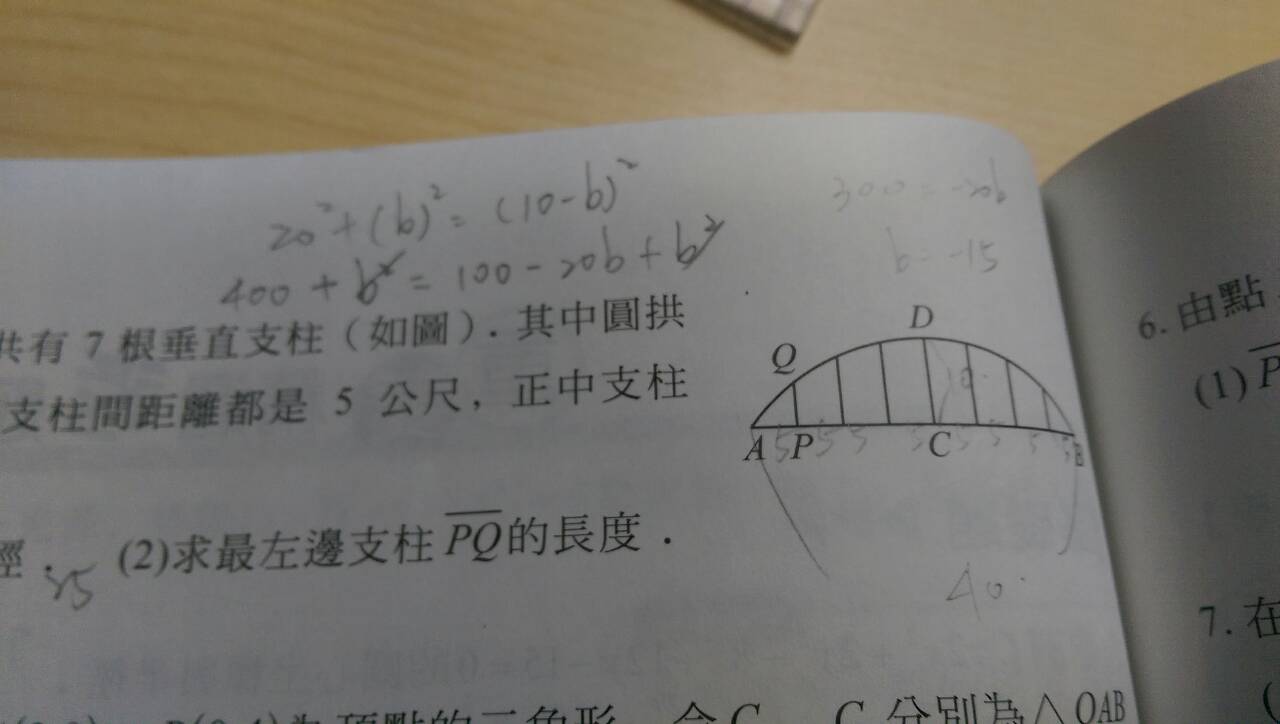 20² + (b)² = (10-b)²
400 + b² = 100 - 20b + b²
300 = -20b
b = -15
共有 7 根垂直支柱（如圖）．其中圓拱
支柱間距離都是 5 公尺，正中支柱
D
Q
10
A 5 P 5 5 5 C 5 5 5 5 B
40
(2)求最左邊支柱 PQ 的長度．
6. 由點
(1) P
7. 在
為頂點的三角形，令 G
分別為△OAB